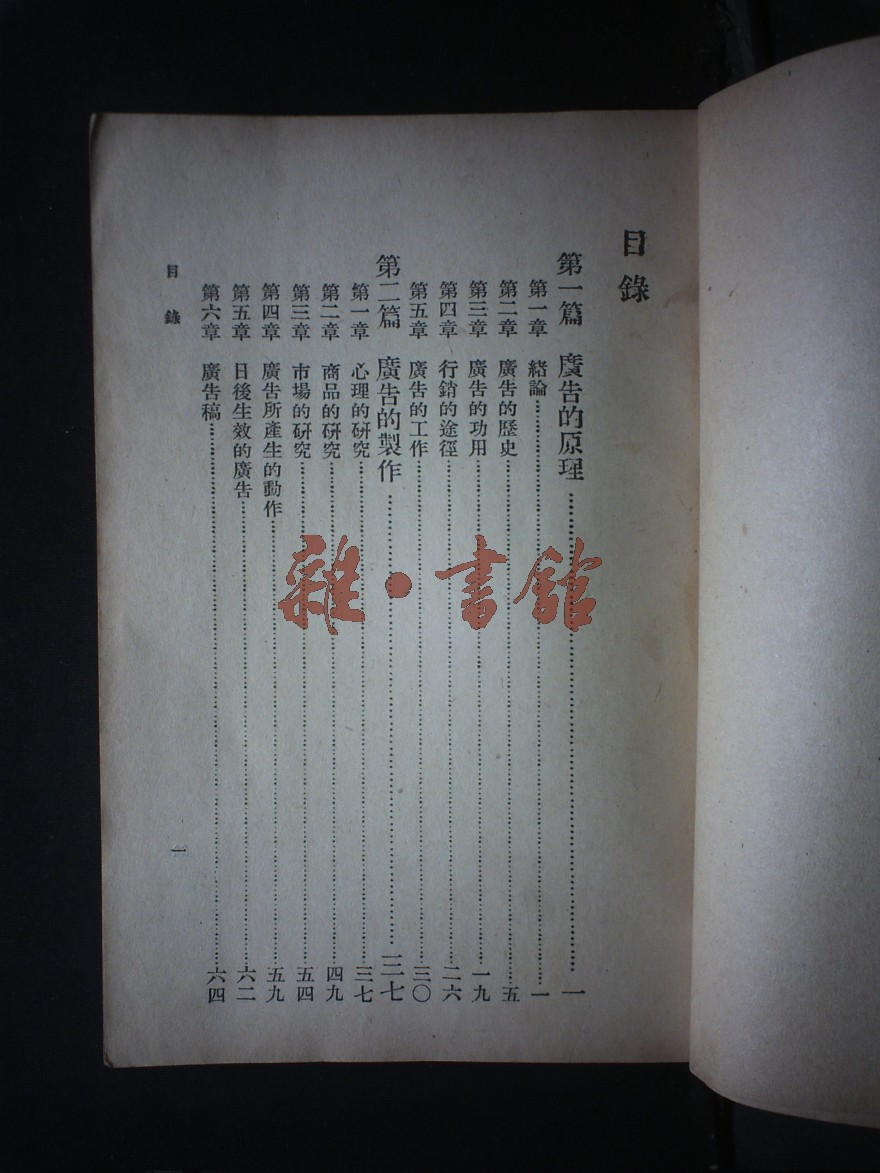 目錄
第一篇 廣告的原理……一
第一章 緒論……一
第二章 廣告的歷史……五
第三章 廣告的功用……一九
第四章 行銷的途徑……二六
第五章 廣告的工作……三〇
第二篇 廣告的製作……三七
第一章 心理的研究……三七
第二章 商品的研究……四九
第三章 市場的研究……五四
第四章 廣告所產生的動作……五九
第五章 日後生效的廣告……六二
第六章 廣告稿……六四
目錄
一
雜·書館